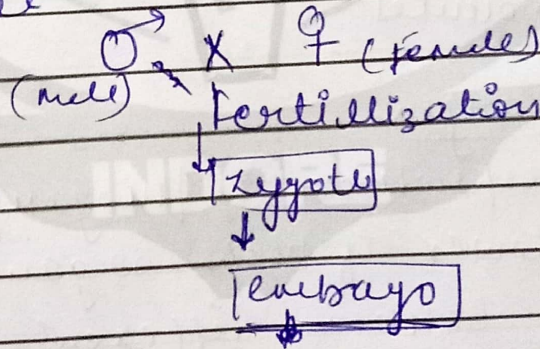 ♂ × ♀ (female)
(male) Fertillization
↓
zygote
↓
embryo
↓